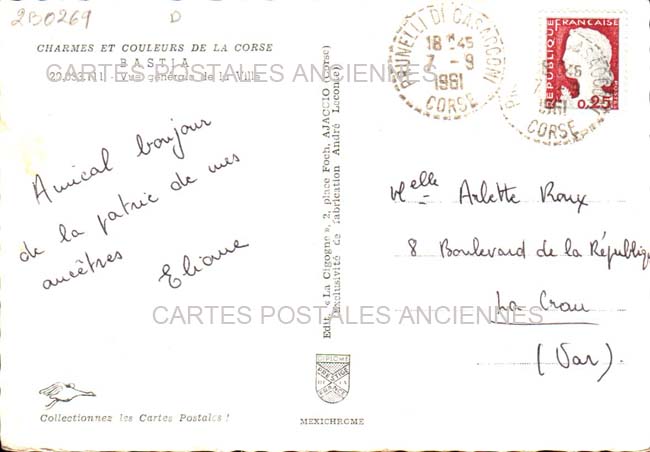 2B0269
D
CHARMES ET COULEURS DE LA CORSE
BASTIA
Vue générale de la Ville
CARTES POSTALES ANCIENNES
Amical bonjour
de la patrie de mes
ancêtres
Eliane
Edit. « La Cigogne », 2, place Foch, AJACCIO (Corse)
Exclusivité de fabrication André Leconte
PRUNELLI DI CASACCONI
18 H 45
7 - 9
1961
CORSE
REPUBLIQUE FRANÇAISE
0,25
1961
CORSE
Melle Arlette Roux
8 Boulevard de la République
La Crau
(Var)
CARTES POSTALES ANCIENNES
DIPLOME
PRESTIGE
DE LA
FRANCE
MEXICHROME
Collectionnez les Cartes Postales !